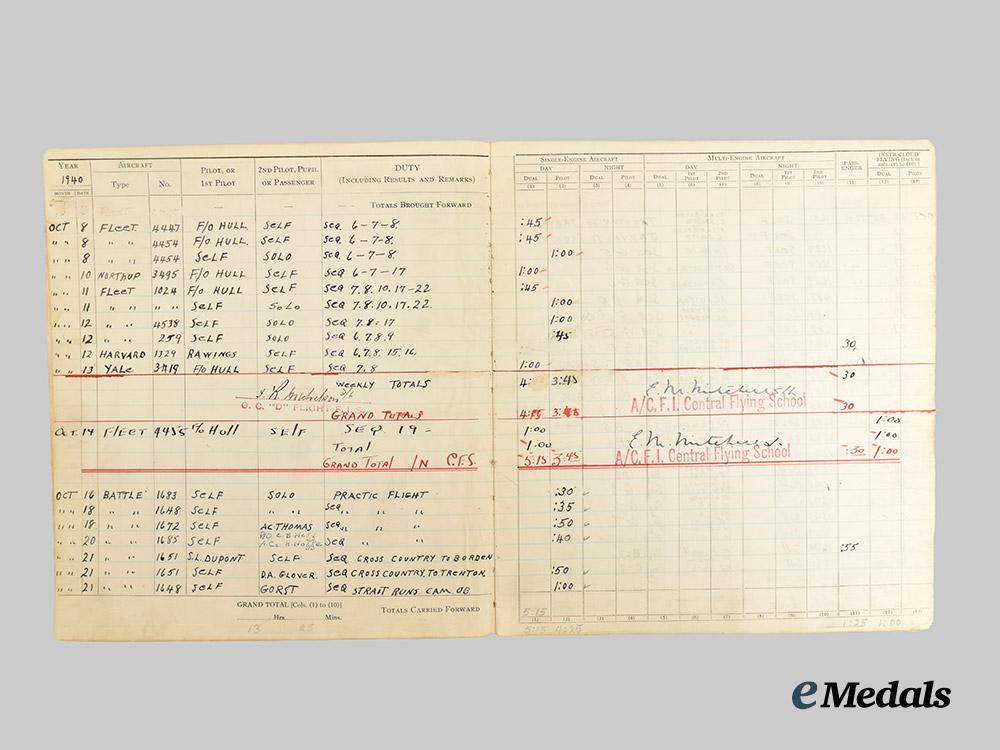 YEAR AIRCRAFT PILOT, OR 2ND PILOT, PUPIL DUTY SINGLE-ENGINE AIRCRAFT MULTI-ENGINE AIRCRAFT PASS- INSTR/CLOUD
1940 1ST PILOT OR PASSENGER (INCLUDING RESULTS AND REMARKS) DAY NIGHT DAY NIGHT ENGER FLYING [Incl. in cols. (1) to (10)]
MONTH DATE Type No. DUAL PILOT DUAL PILOT DUAL 1ST PILOT 2ND PILOT DUAL 1ST PILOT 2ND PILOT DUAL PILOT
(1) (2) (3) (4) (5) (6) (7) (8) (9) (10) (11) (12) (13)
— — — TOTALS BROUGHT FORWARD
OCT 8 FLEET 4447 F/O HULL SELF SEQ 6-7-8. :45
" " 8 " " 4454 F/O HULL. SELF SEQ 6-7-8. :45
" " 8 " " 4454 SELF SOLO SEQ 6-7-8 1:00
" " 10 NORTHUP 3495 F/O HULL SELF SEQ 6-7-17 1:00
" " 11 FLEET 1024 F/O HULL SELF SEQ 7.8.10.17-22 :45
" " 11 " " " " SELF SOLO SEQ 7.8.10.17.22. 1:00
" " 12 " " 4538 SELF SOLO SEQ 7.8-17 1:00
" " 12 " " 259 SELF SOLO SEQ 6.7.8.9 :45
" " 12 HARVARD 1329 RAWINGS SELF SEQ 6.7.8.15.16. 30
" " 13 YALE F/O HULL SELF SEQ 7.8 1:00
WEEKLY TOTALS 4: 3:45 30
O. C. "D" FLIGHT A/C.F.I. Central Flying School
GRAND TOTALS 3:45 30
OCT. 14 FLEET 4435 F/O Hull SELF SEQ 19- 1:00 1:00
TOTAL 1:00 1:00
GRAND TOTAL IN C.F.S. 5:15 5:45 A/C.F.I. Central Flying School :30 1:00
OCT 16 BATTLE 1683 SELF SOLO PRACTIC FLIGHT :30
" " 18 " " 1648 SELF " " SEQ " " :35
" " 18 " " 1672 SELF AC THOMAS SEQ " " :50
" " 20 " " 1685 SELF SEQ " " :40
" " 21 " " 1651 S.L. DUPONT SELF SEQ CROSS COUNTRY TO BORDEN :55
" " 21 " " 1651 SELF DA. GLOVER. SEQ CROSS COUNTRY, TO, TRENTON. :50
" " 21 " " 1648 SELF GORST SEQ STRAIT RUNS. CAM. OB. 1:00
GRAND TOTAL [Cols. (1) to (10)] TOTALS CARRIED FORWARD 5:15
Hrs. Mins. (1) (2) (3) (4) (5) (6) (7) (8) (9) (10) (11) (12) (13)
13 25 5:15 4:25 1:25 1:00
eMedals